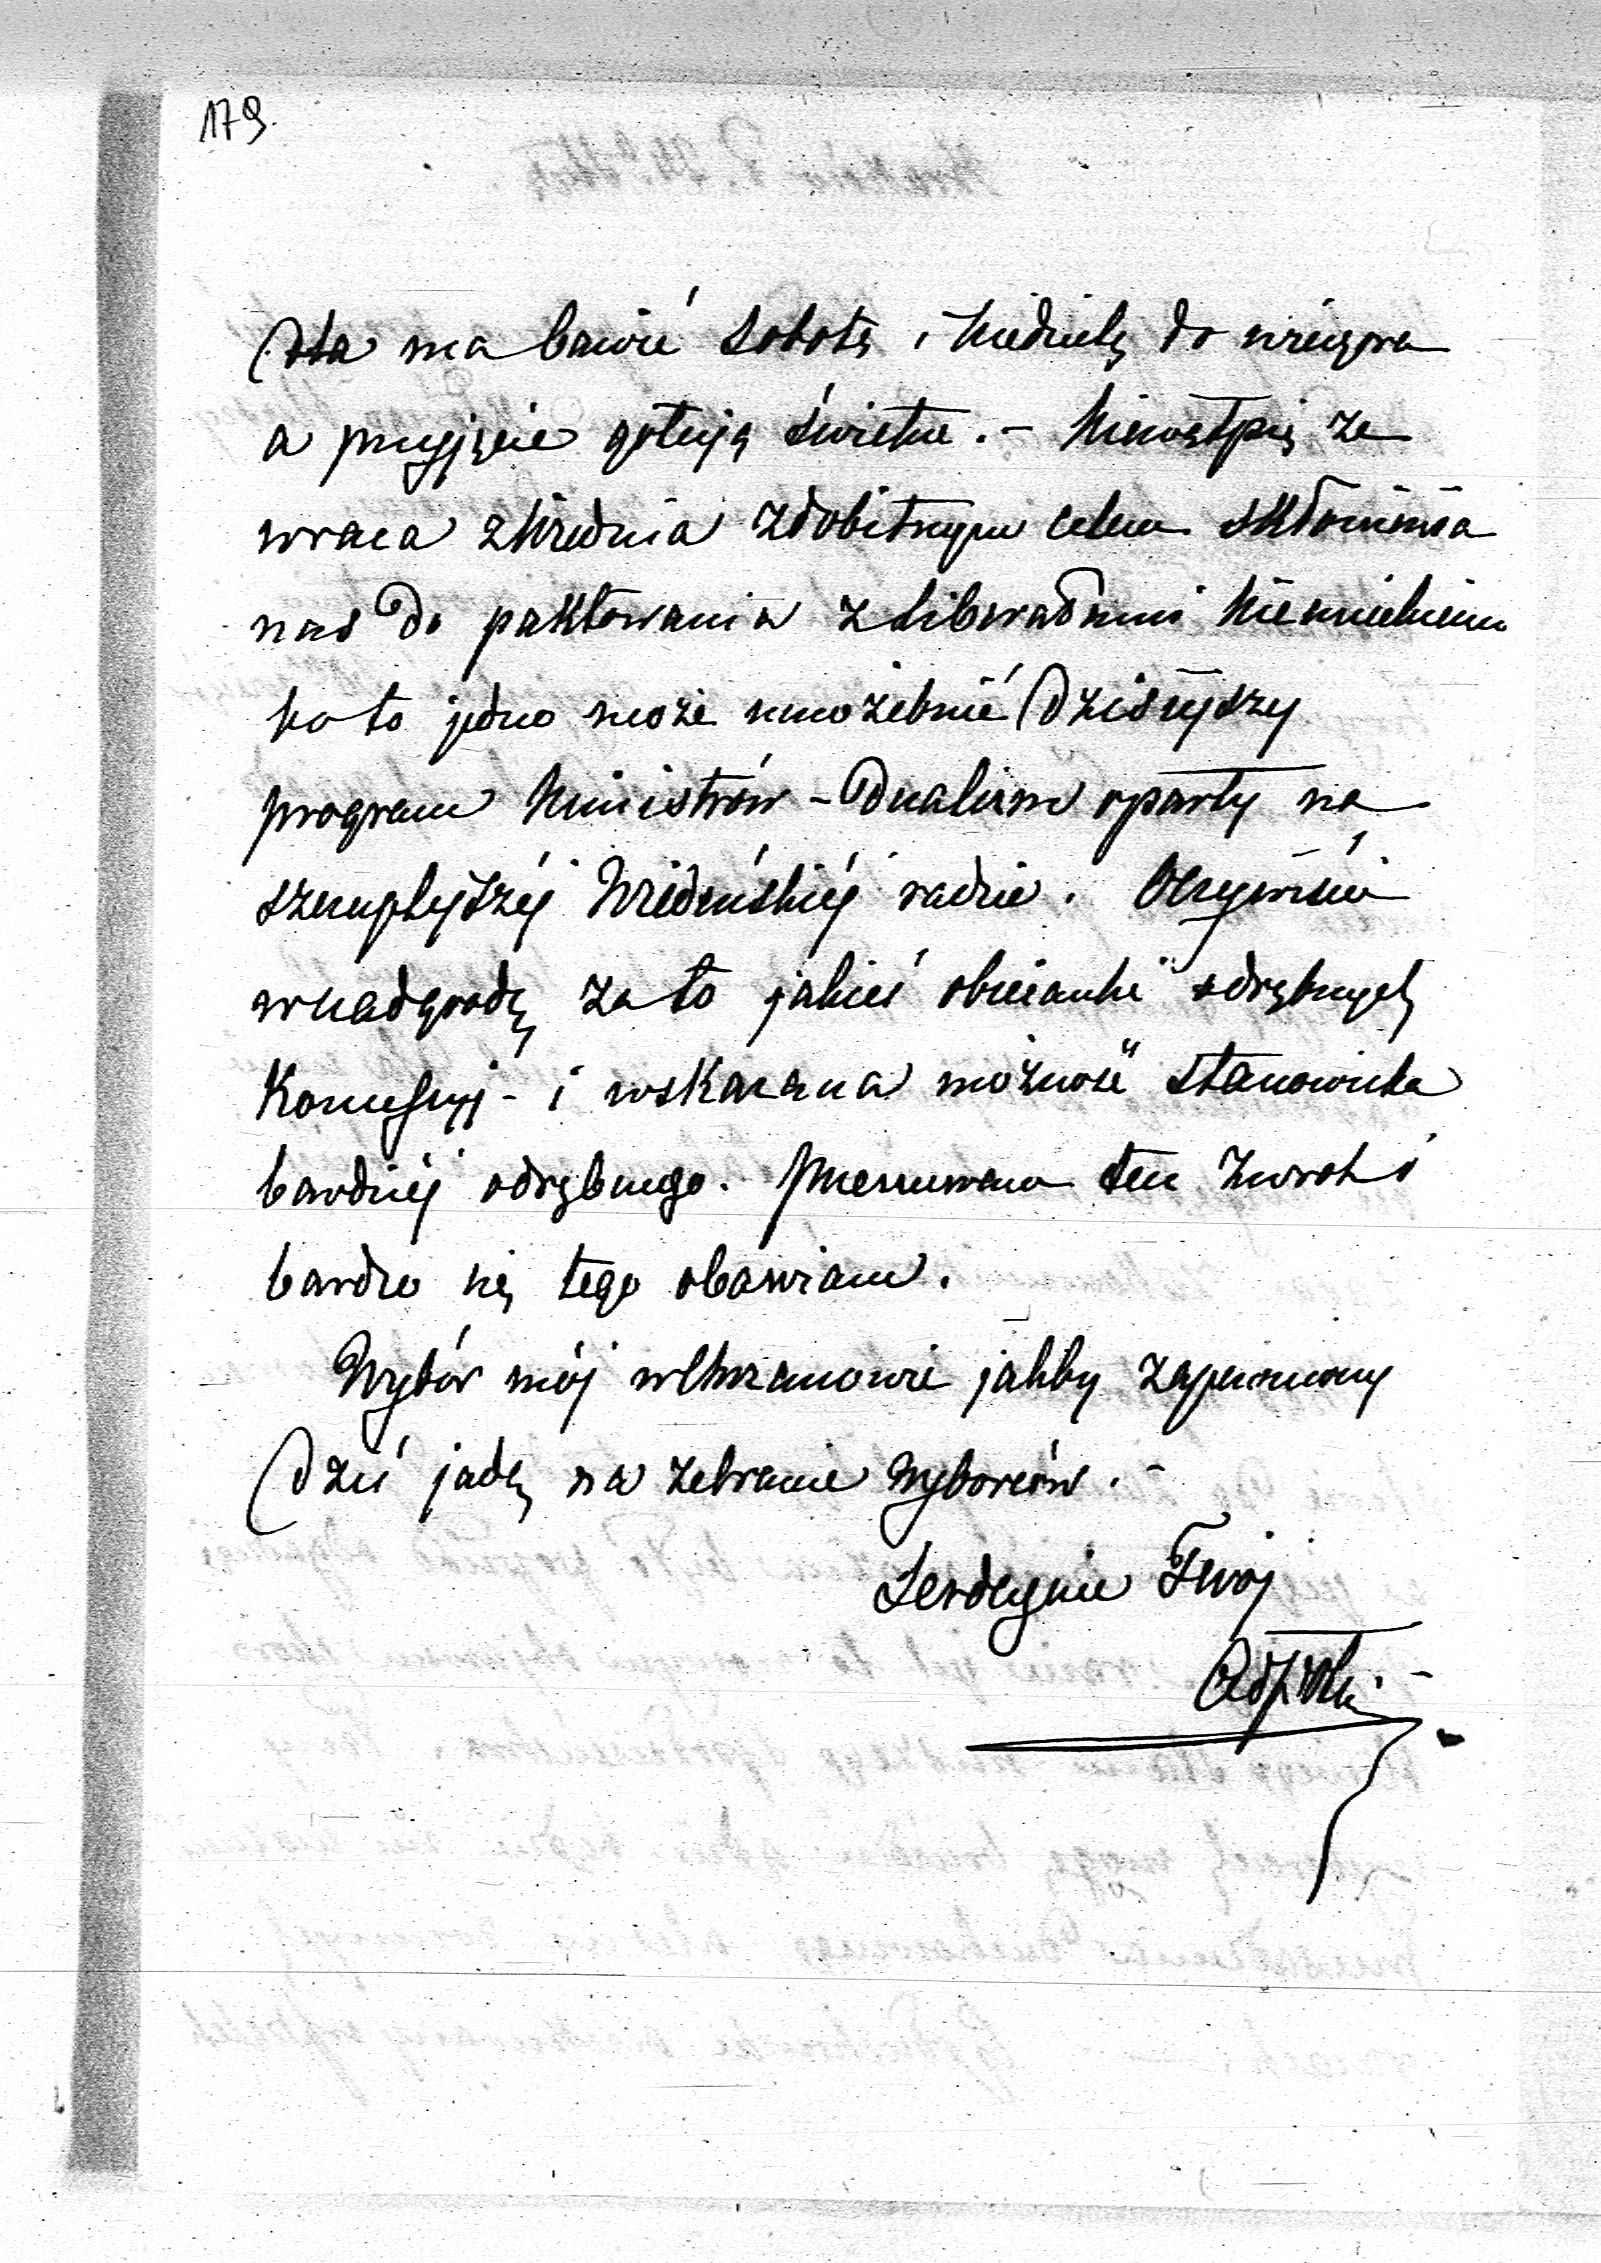 179.
ma bawić Sobotę i Niedzielę do wieczora
a przyjęcie gotują świetne. - Niewątpię że
wraca zWiednia zdobitnym celem skłonienia
nas do paktowania z Liberałami Niemieckiemi
bo to jedno może umożebnić dzisiejszy
program Ministrów - Dualizm oparty na
szczuplejszéj Wiedeńskiéj radzie. Oczywiście
wnadgrodę za to jakieś obiecanki odrębnych
Koncessyj - i wskazana możność stanowiska
bardziéj odrębnego. Przeczuwam ten zwrot i
bardzo się tego obawiam.
Wybór mój wChrzanowie jakby zapewniony
Dziś jadę na zebranie Wyborców. -
Serdecznie Twój